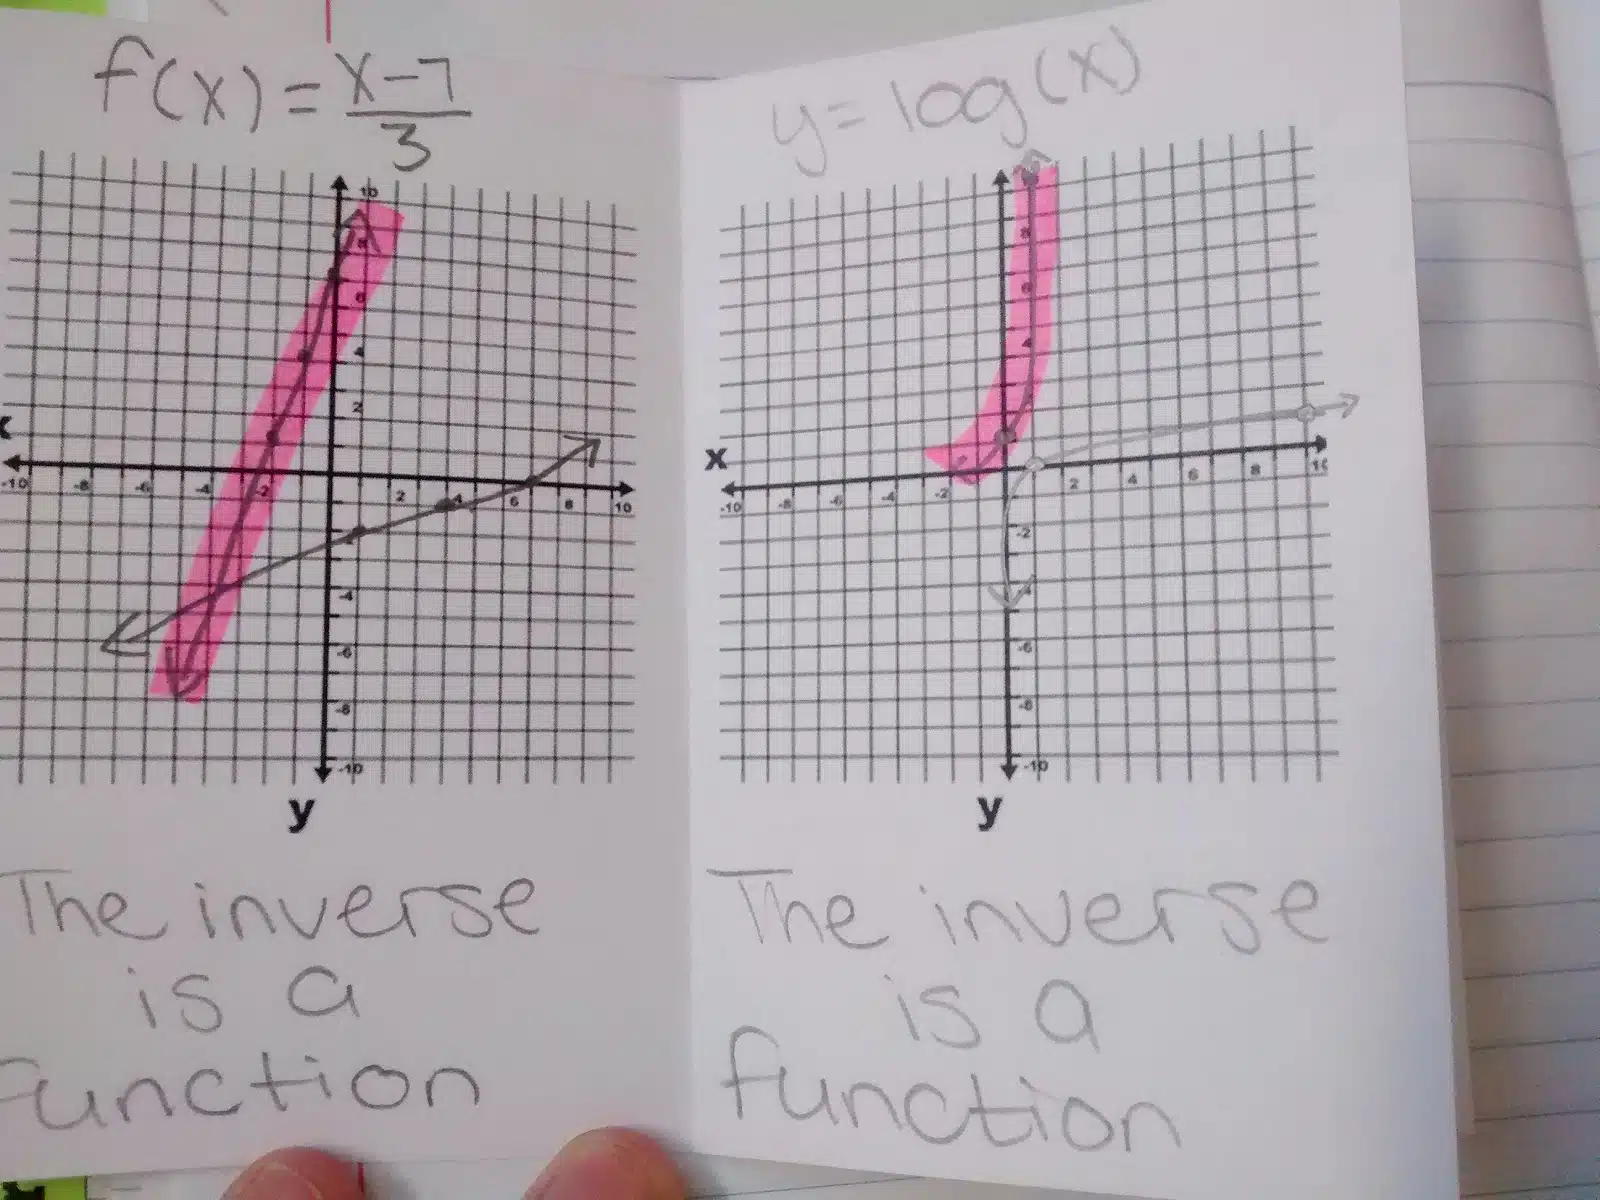 f(x) = x-7
3
10
8
6
4
2
-10 -8 -6 -4 -2 2 4 6 8 10
-2
-4
-6
-8
-10
y
The inverse
is a
function
y = log(x)
8
6
4
x
-10 -8 -6 -4 -2 2 4 6 8 10
-2
-4
-6
-8
-10
y
The inverse
is a
function